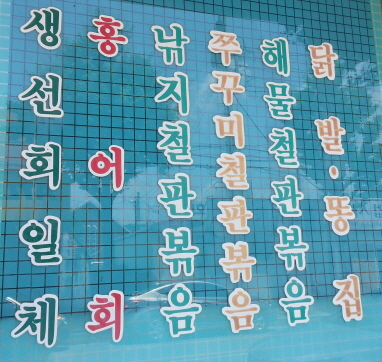 생선회일체
홍어회
낚지철판볶음
쭈꾸미철판볶음
해물철판볶음
닭발·똥집